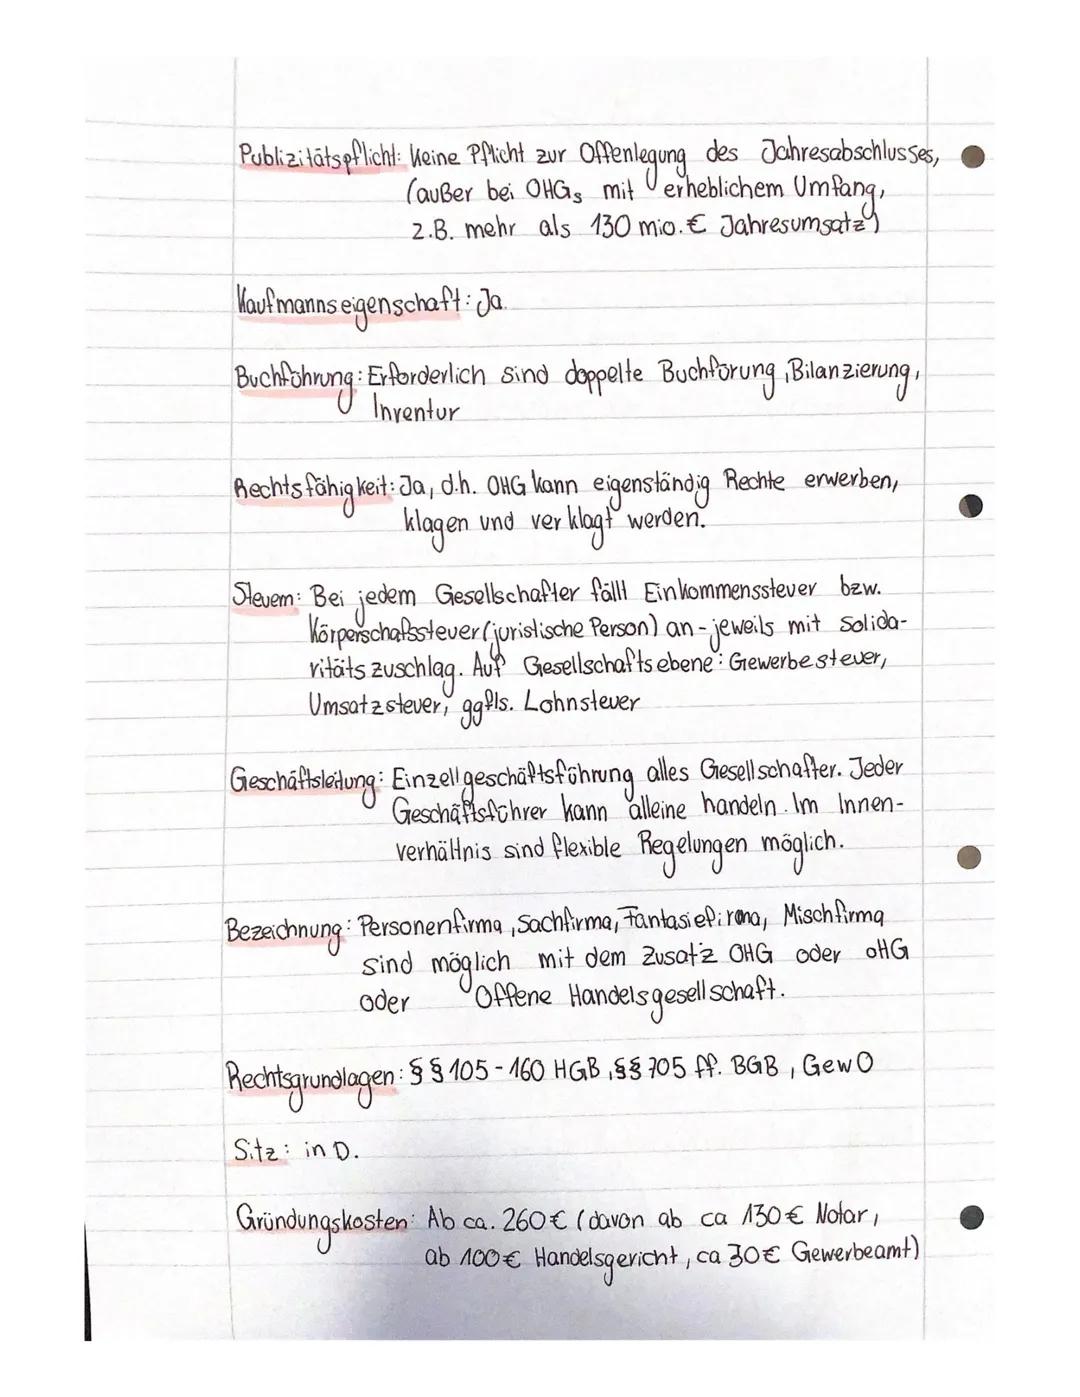 Publizitätspflicht: Keine Pflicht zur Offenlegung des Jahresabschlusses,
(außer bei OHGs mit erheblichem Umfang,
z.B. mehr als 130 mio. € Jahresumsatz)
Kaufmannseigenschaft: Ja.
Buchführung: Erforderlich sind doppelte Buchförung, Bilanzierung,
Inventur
Rechtsfähigkeit: Ja, d.h. OHG kann eigenständig Rechte erwerben,
klagen und verklagt werden.
Steuern: Bei jedem Gesellschafter fällt Einkommenssteuer bzw.
Körperschafssteuer (juristische Person) an - jeweils mit Solida-
ritätszuschlag. Auf Gesellschaftsebene: Gewerbesteuer,
Umsatzsteuer, ggfls. Lohnsteuer
Geschäftsleitung: Einzellgeschäftsführung alles Gesellschafter. Jeder
Geschäftsführer kann alleine handeln. Im Innen-
verhältnis sind flexible Regelungen möglich.
Bezeichnung: Personenfirma, Sachfirma, Fantasiefirma, Mischfirma
sind möglich mit dem Zusatz OHG oder oHG
oder Offene Handelsgesellschaft.
Rechtsgrundlagen: §§ 105 - 160 HGB, §§ 705 ff. BGB, GewO
Sitz: in D.
Gründungskosten: Ab ca. 260€ (davon ab ca 130€ Notar,
ab 100€ Handelsgericht, ca 30€ Gewerbeamt)